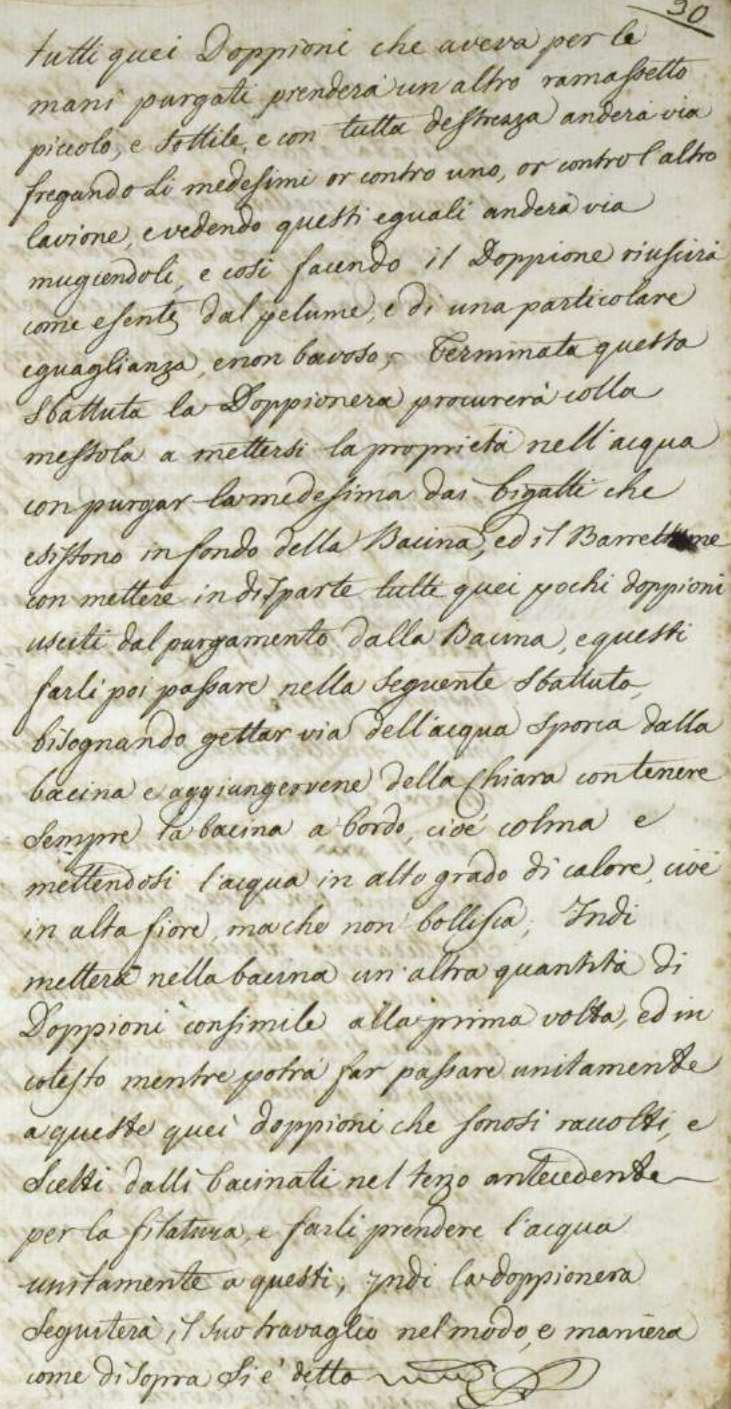 30
tutti quei Doppioni che aveva per le
mani purgati prenderà un altro ramassetto
piccolo, e sottile, e con tutta destrezza anderà via
fregando li medesimi or contro uno, or contro l'altro
lavione, e vedendo questi eguali anderà via
mugiendoli, e così facendo il Doppione riuscirà
come esente dal pelume, e di una particolare
eguaglianza, e non bavoso; Terminata questa
Sbattuta la Doppionera procurerà colla
messola a mettersi la proprietà nell'acqua
con purgar la medesima dai bigatti che
esistono in fondo della Bacina, ed il
con mettere in disparte tutti quei pochi doppioni
usciti dal purgamento dalla Bacina, e questi
farli poi passare nella seguente Sbattuta,
bisognando gettar via dell'acqua sporca dalla
bacina e aggiungervene della Chiara con tenere
sempre la bacina a bordo, cioè colma e
mettendosi l'acqua in alto grado di calore, cioè
in alta fiore, ma che non bollisca; Indi
metterà nella bacina un'altra quantità di
Doppioni consimile alla prima volta, ed in
cotesto mentre potrà far passare unitamente
a queste quei doppioni che sonosi raccolti, e
Scelti dalli bacinati nel terzo antecedente
per la filatura, e farli prendere l'acqua
unitamente a questi; Indi la doppionera
Seguiterà il suo travaglio nel modo, e maniera
come di sopra si è detto